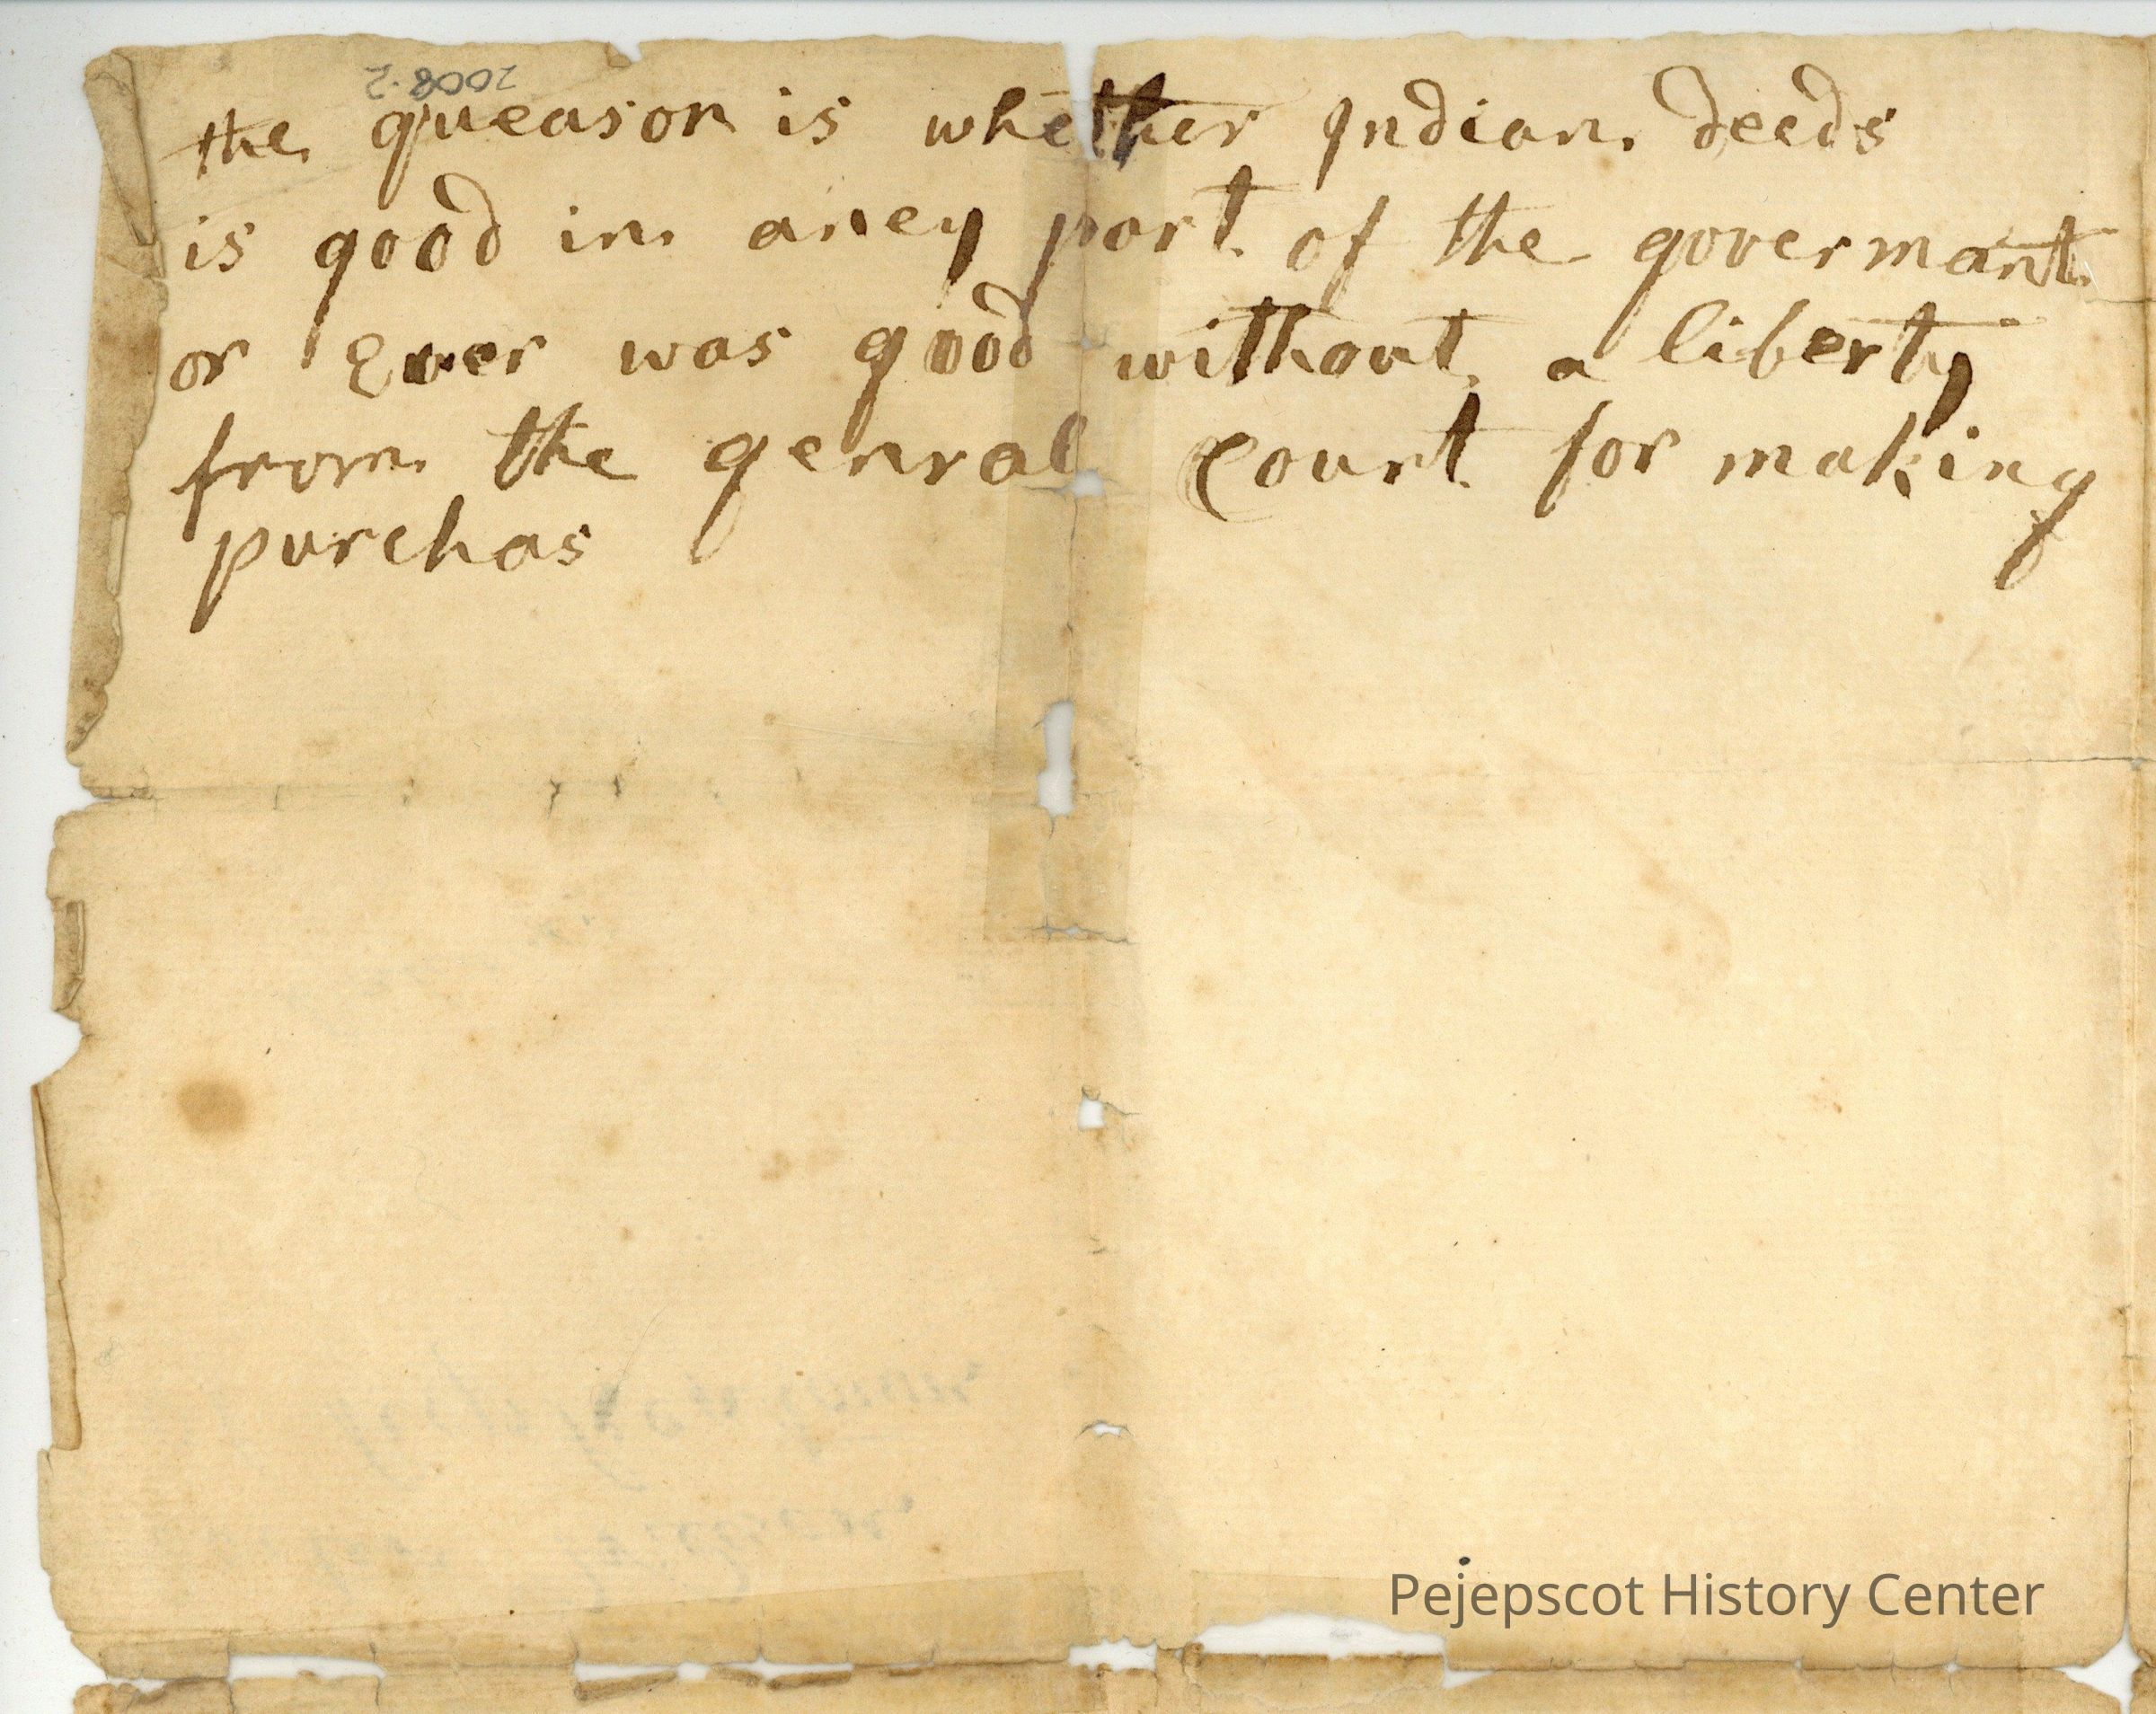 2008.2
the queason is whether Indian deeds
is good in aney part of the govermant
or Ever was good without a liberty
from the genral Court for making
purchas
Pejepscot History Center